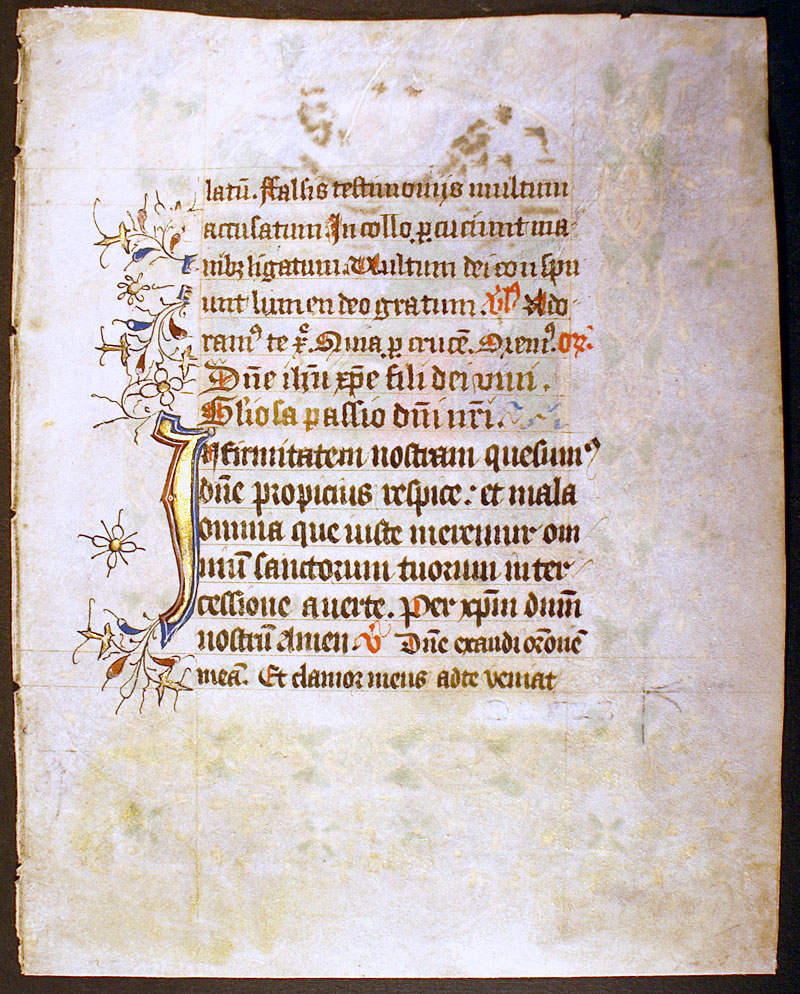 latū. Falsis testimonijs multum
accusatum In collo ꝑcuciunt ma
nibꝫ ligatum. Vultum dei conspu
unt lumen deo gratum. v̄ꝰ Ado
ramꝰ te xp̄e. Quia ꝑ crucē. Oremꝰ. or̄.
Dn̄e ih̄u xp̄e fili dei viui.
Gl̄iosa passio dn̄i nr̄i.
Infirmitatem nostram quesumꝰ
dn̄e propicius respice: et mala
omnia que iuste meremur om
niū sanctorum tuorum inter
cessione auerte. Per xp̄m dn̄m
nostrū Amen. v̄ Dn̄e exaudi or̄onē
meā. Et clamor meus adte veniat